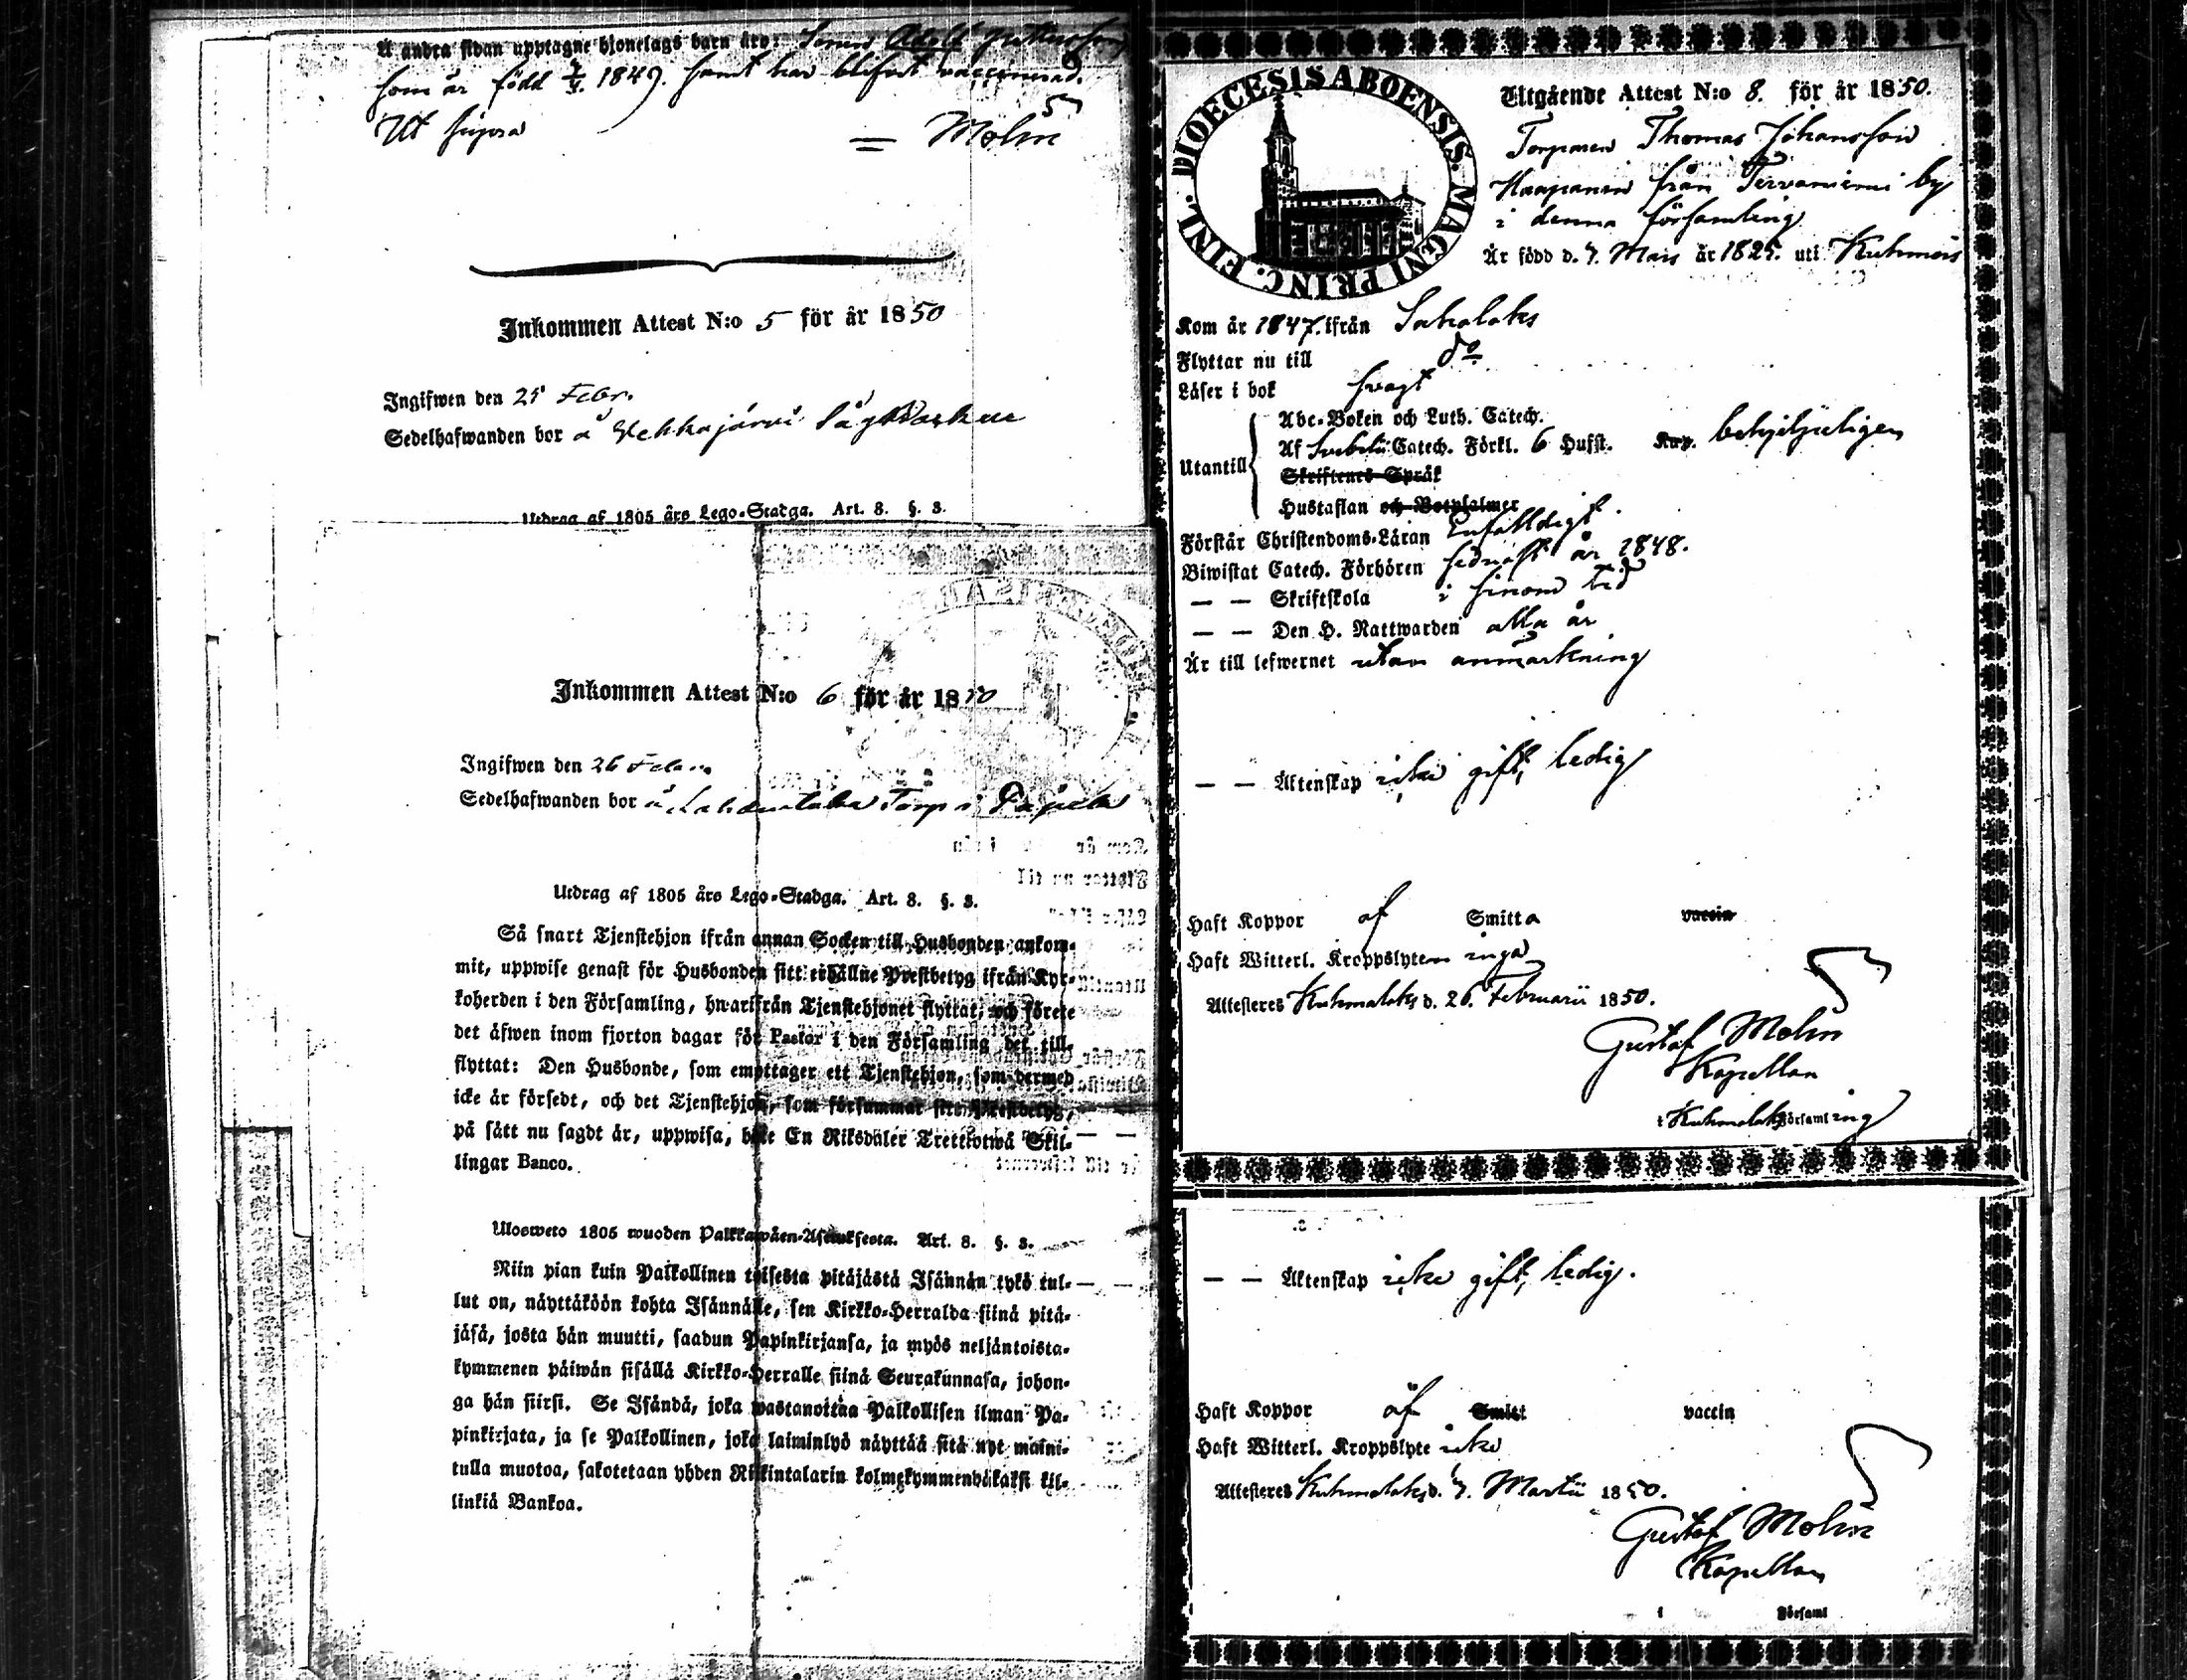 Å andra sidan upptagne hjonelags barn äro: Sonen Adolf Pettersson
som är född 1849. samt har blifvit vaccinerad.
Ut supra = Molin
Inkommen Attest N:o 5 för år 1850
Ingifwen den 25 Febr.
Sedelhafwanden bor å Vehkajärvi Sågbacken
Utdrag af 1805 års Lego-Stadga. Art. 8. §. 3.
Inkommen Attest N:o 6 för år 1850
Ingifwen den 26 Febr.
Sedelhafwanden bor å Torp i
Utdrag af 1805 års Lego-Stadga. Art. 8. §. 3.
Så snart Tjenstehjon ifrån annan Socken till Husbonden ankom-
mit, uppwise genast för Husbonden sitt erhållne Prestbetyg ifrån Kyr-
koherden i den Församling, hwarifrån Tjenstehjonet flyttat, och förete
det äfwen inom fjorton dagar för Pastor i den Församling det till-
flyttat: Den Husbonde, som emottager ett Tjenstehjon, som dermed
icke är försedt, och det Tjenstehjon, som försummar sitt Prestbetyg,
på sätt nu sagdt är, uppwisa, böte En Riksdaler Trettiotwå Skil-
lingar Banco.
Ulosweto 1805 wuoden Palkkawäen-Asetuksesta. Art. 8. §. 3.
Niin pian kuin Palkollinen toisesta pitäjästä Isännän tykö tul-
lut on, näyttäköön kohta Isännälle, sen Kirkko-Herralda siinä pitä-
jäsä, josta hän muutti, saadun Papinkirjansa, ja myös neljäntoista-
kymmenen päiwän sisällä Kirkko-Herralle siinä Seurakunnasa, johon-
ga hän siirsi. Se Isändä, joka wastanottaa Palkollisen ilman Pa-
pinkirjata, ja se Palkollinen, joka laiminlyö näyttää sitä nyt maini-
tulla muotoa, sakotetaan yhden Riikintalarin kolmekymmendäkaksi kil-
linkiä Bankoa.
DIOECESIS ABOENSIS. MAGNI PRINC. FINL.
Utgående Attest N:o 8. för år 1850.
Torparen Thomas Johansson
Haapanen från Tervaniemi by
i denna församling
Är född d. 7. Mars år 1825. uti Kuhmois
Kom år 1847. ifrån Sahalaks
Flyttar nu till do
Läser i bok svagt
Abc-Boken och Luth. Catech.
Utantill Af Svebelii Catech. Förkl. 6 Hufst. Kap. behjelpeligen
Skriftenes Språk
Hustaflan och Botpsalmer
Förstår Christendoms-Läran Enfaldigt
Biwistat Catech. Förhören sednast år 1848.
— — Skriftskola i sinom tid
— — Den H. Nattwarden alla år
Är till lefwernet utan anmärkning
— — Äktenskap icke gift, ledig
Haft Koppor af Smitta vaccin
Haft Witterl. Kroppslyten inga
Attesteres Kuhmalaks d. 26. Februarii 1850.
Gustaf Molin
Kapellan
i Kuhmalaks Församling
— — Äktenskap icke gift, ledig.
Haft Koppor af Smitt vaccin
Haft Witterl. Kroppslyte icke
Attesteres Kuhmalaks d. 7. Martii 1850.
Gustaf Molin
Kapellan
i Församl